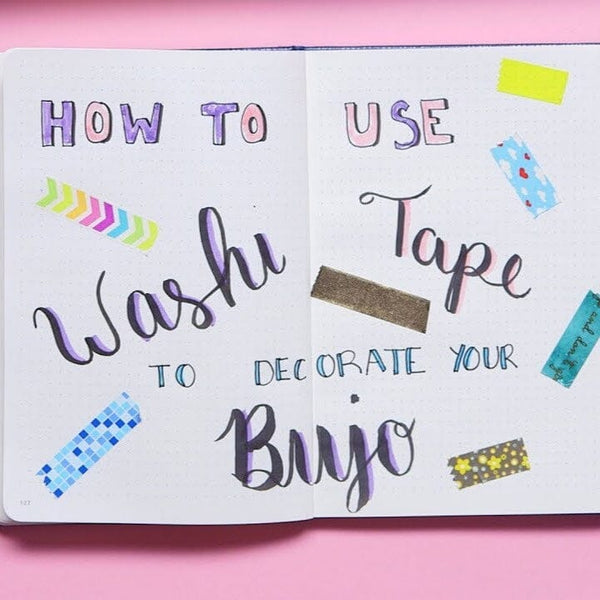 HOW TO USE
Washi Tape
TO DECORATE YOUR
Bujo
and don't
127